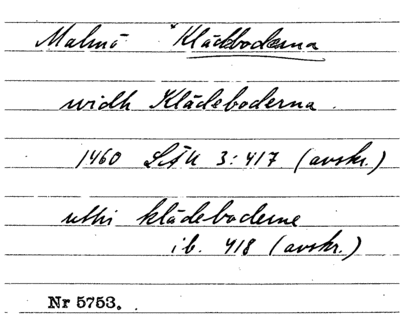 Malmö *Klädboderna
widh Klädeboderna.
1460 LÄU 3:417 (avskr.)
uthi klädeboderne
ib. 418 (avskr.)
Nr 5753.